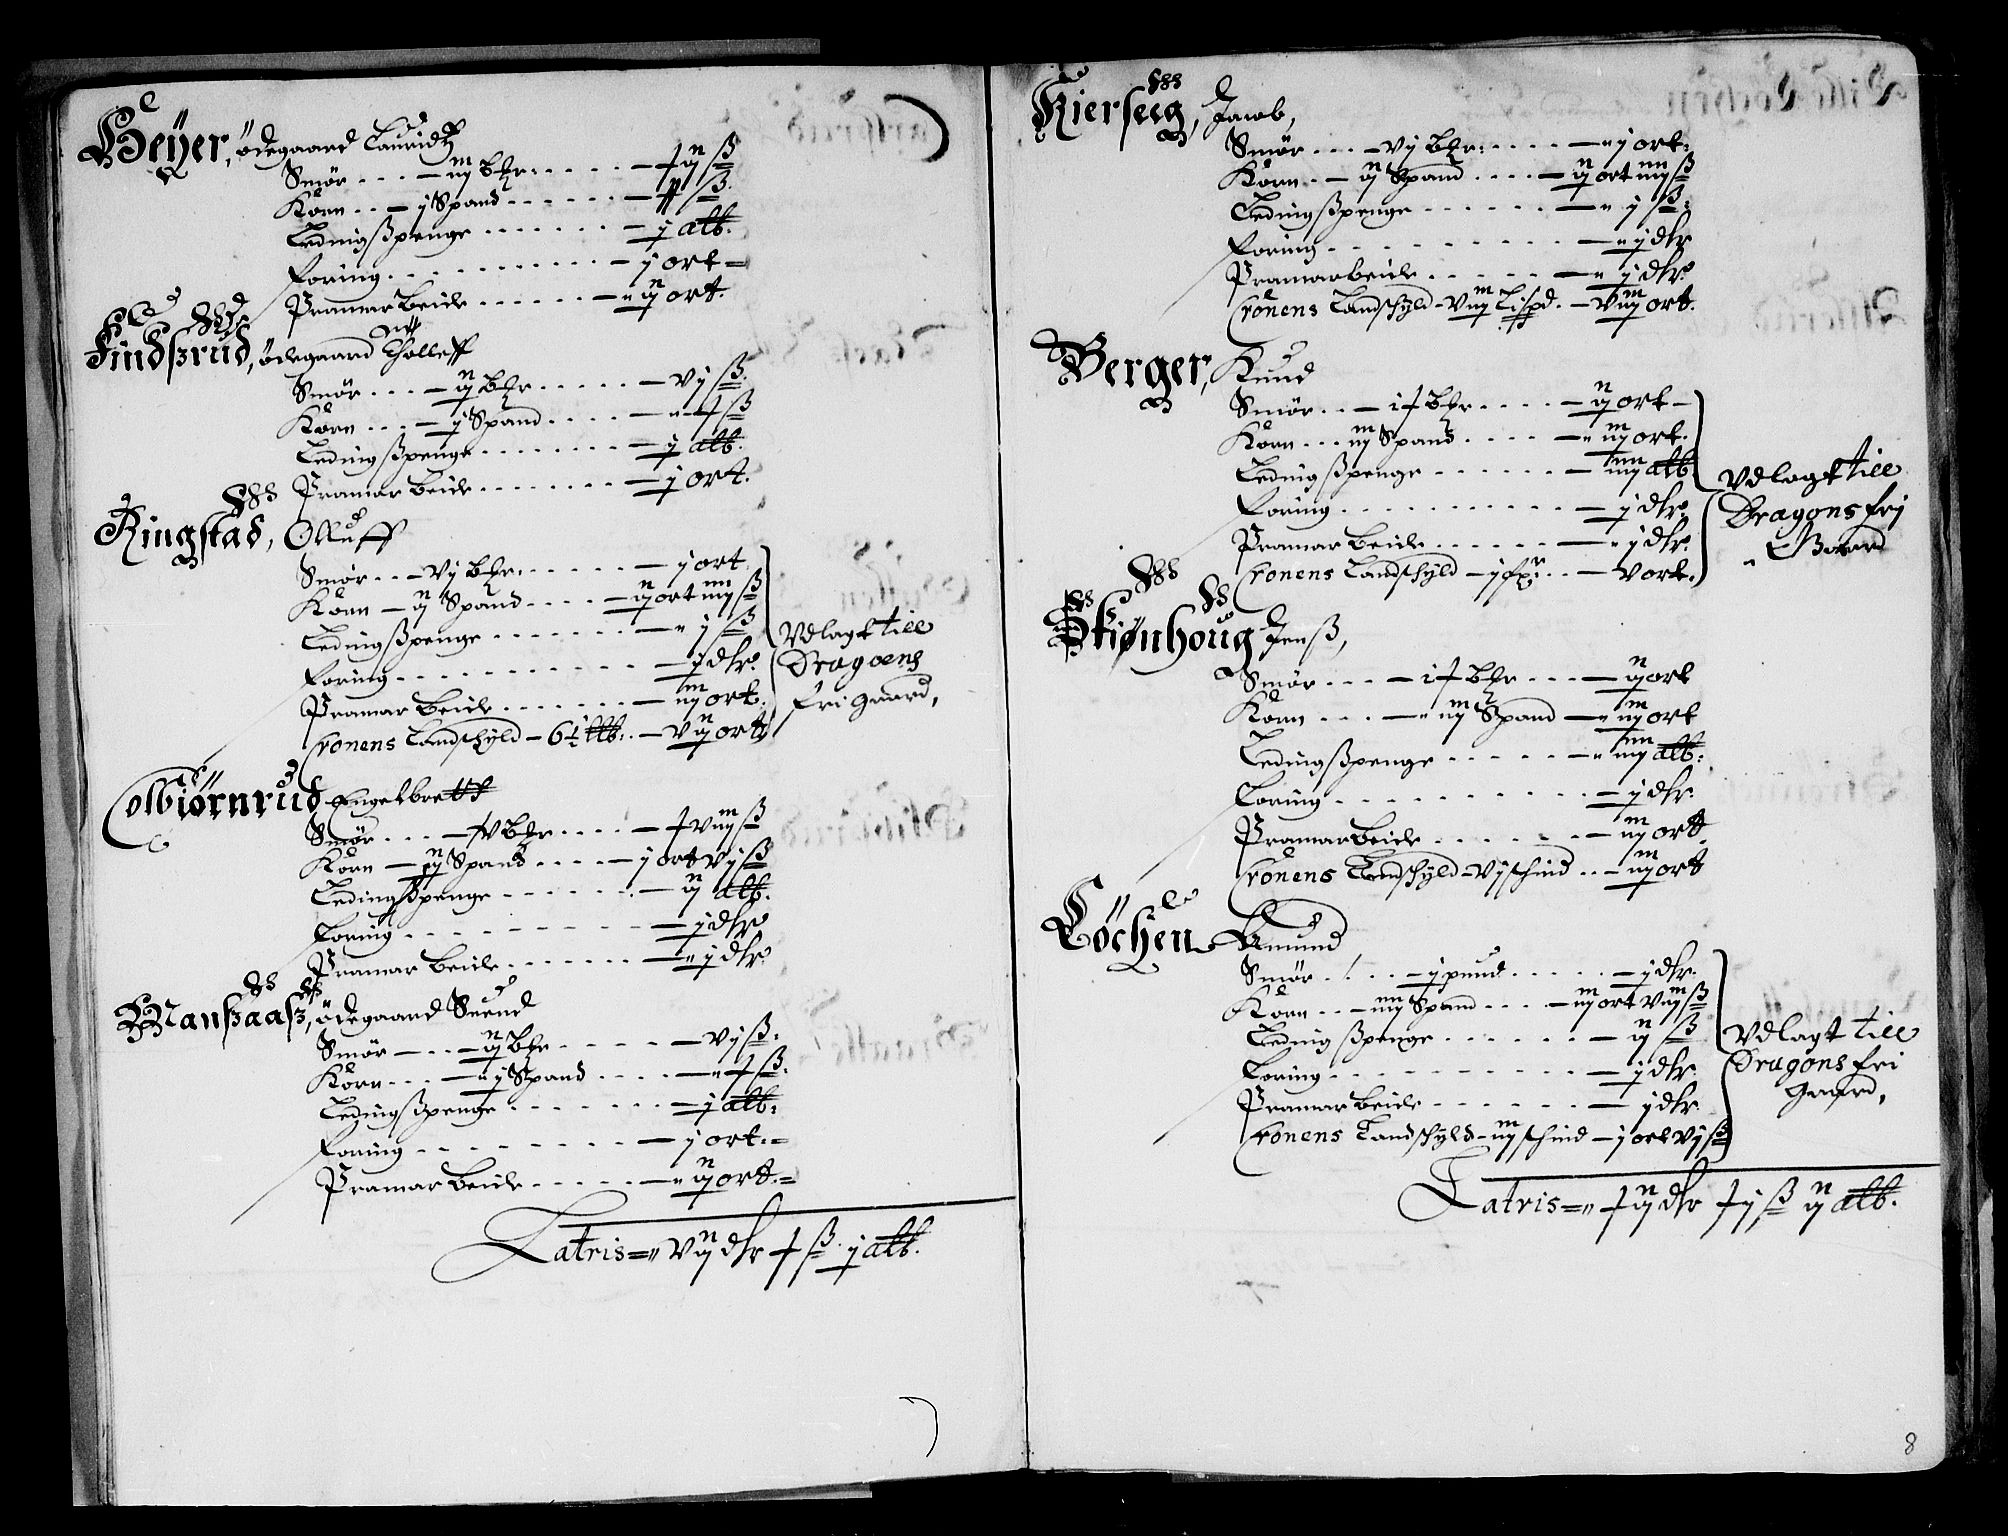 Heÿer, ödegaard Lauridtz
Smör . . . — iij bzr. . . . . . — xij ß
Korn . . — j Spand . . . . . . — x ß.
Ledingßpenge . . . . . . . — j alb.
foring . . . . . . . . . . . — j ort =
Pramarbeide . . . . . . — " ij ort.
Findßrud, ödegaard Tholleff
Smör . . . — ij bzr . . . . . — vj ß.
Korn . . . — j Spand . . . . — " x ß
Ledingßpenge . . . . . . . — j alb.
Pramarbeide . . . . . . . — j ort.
Ringstad, Olluff
Smör . . — vj bzr. . . . . . . — j ort
Korn — ij Spand . . . . — ij ort iiij ß
Ledingßpenge . . . . . . . — " j ß
foring . . . . . . . . . . . — j dlr.
Pramarbeide . . . . . . . — iij ort.
Cronens Landschyld — 6½ ℔. . — vij ort
Vdlagt till
Dragoens
fri gaard,
Colbiörnrud Engelbrett
Smör . . . — xv bzr . . . . — xviij ß
Korn — ij Spand . . . . — j ort vj ß
Ledingßpenge . . . . . . . — ij alb.
foring . . . . . . . . . . — j dlr
Pramarbeide . . . . . . . — " j dlr.
Manßaaß, ödegaard Suend
Smör — . . — ij bzr . . . . . — vj ß.
Korn . . . — " j Spand . . . . — " x ß.
Ledingßpenge . . . . . . . — j alb.
foring . . . . . . . . . . — j ort. =
Pramarbeide . . . . . — " ij ort. =
Latris = " vij dlr x ß j alb.
Kierseeg, Jacob,
Smör . . . — vj bzr. . . . . — " j ort.
Korn . . — ij Spand . . . . — ij ort iiij ß
Ledingßpenge . . . . . . — " j ß.
foring . . . . . . . . . . — " j dlr
Pramarbeide . . . . . . — " j dlr.
Cronens Landschyld — viij Lispd. — viij ort.
Berger, Knud
Smör . . — ix bzr . . . . — ij ort —
Korn . . . iij Spand . . . . — " iij ort.
Ledingßpenge . . . . . . — iiij alb
foring . . . . . . . . . . . — j dlr.
Pramarbeide . . . . . . — " j dlr.
Cronens Landschyld — j . . — v ort.
Vdlagt till
Dragons frj
Gaard
Skiønhoug Jenß,
Smör . . . — ix bzr . . . — ij ort
Korn . . . — " iij Spand — " iij ort
Ledingßpenge . . . . . — " iiij alb.
foring . . . . . . . . . . — j dlr.
Pramarbeide . . . . . . — iij ort
Cronens Landschyld — vj schind . . — iij ort
Löchen Amund
Smör . . . . — j pund . . . . . — j dlr.
Korn . . — iiij Spand . . . . — iij ort viij ß
Ledingßpenge . . . . . . — ij ß
foring . . . . . . . . . . — j dlr
Pramarbeide . . . . . . — j dlr
Cronens Landschyld — iij schind — j ort vj ß
Vdlagt till
Dragons fri
gaard,
Latris = " xij dlr xj ß ij alb.
8